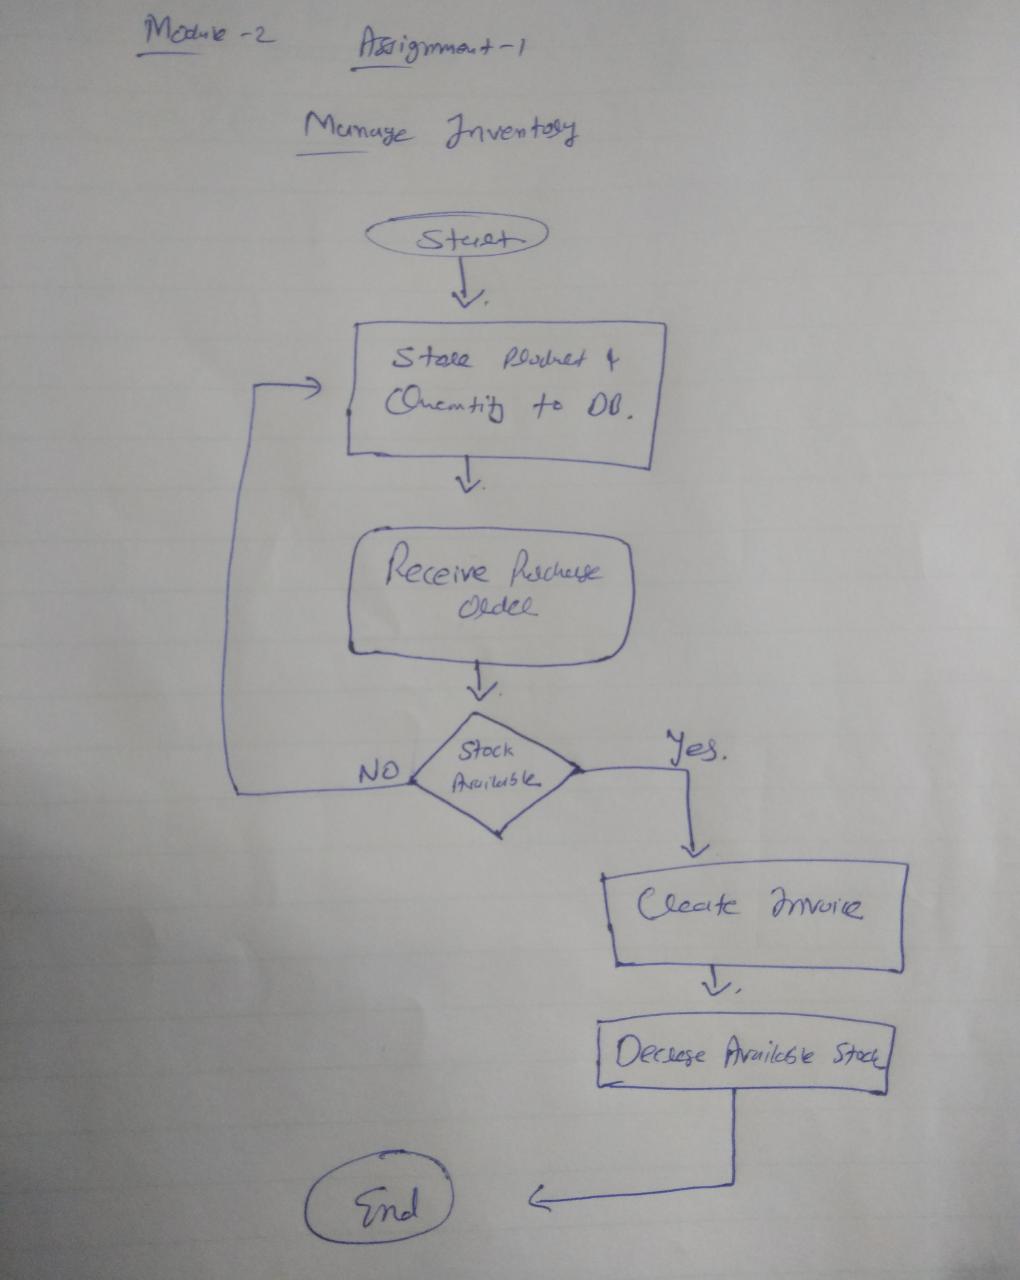 Module-2
Assignment-1
Manage Inventory
Start
Store Product &
Quantity to DB.
Receive Purchase
Order
Stock
Available
NO
Yes.
Create Invoice
Decrese Available Stock
End